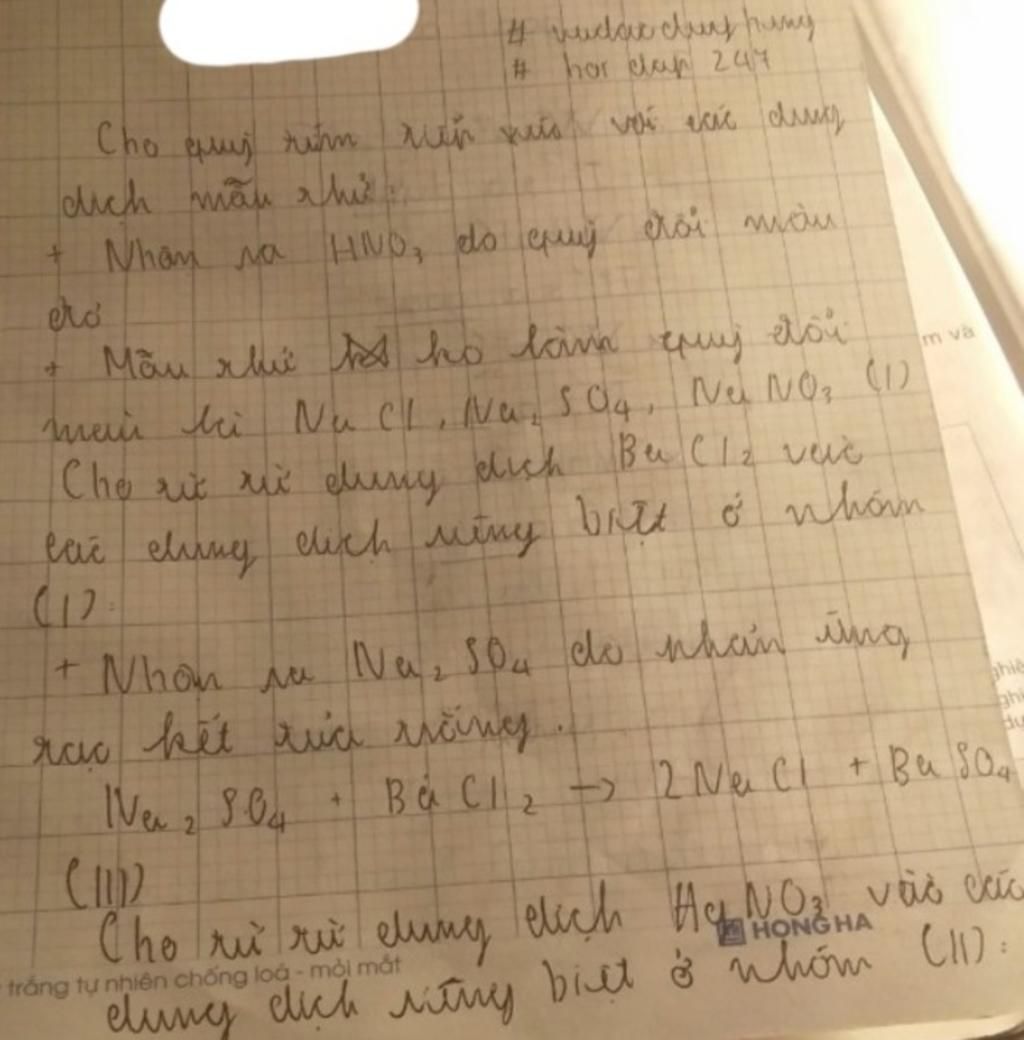 # vudacduyhung
# hoi dap 247
Cho quỳ tím tiếp xúc với các dung
dịch mẫu thử:
+ Nhận ra HNO3 do quỳ đổi màu
đỏ
+ Mẫu thử ko làm quỳ đổi
màu là NaCl, Na2SO4, NaNO3 (I)
Cho từ từ dung dịch BaCl2 vào
các dung dịch riêng biệt ở nhóm
(I):
+ Nhận ra Na2SO4 do phản ứng
tạo kết tủa trắng.
Na2SO4 + BaCl2 → 2NaCl + BaSO4
(III)
Cho từ từ dung dịch AgNO3 vào các
HONG HA
trắng tự nhiên chống loá - mỏi mắt
dung dịch riêng biệt ở nhóm (II):
m và